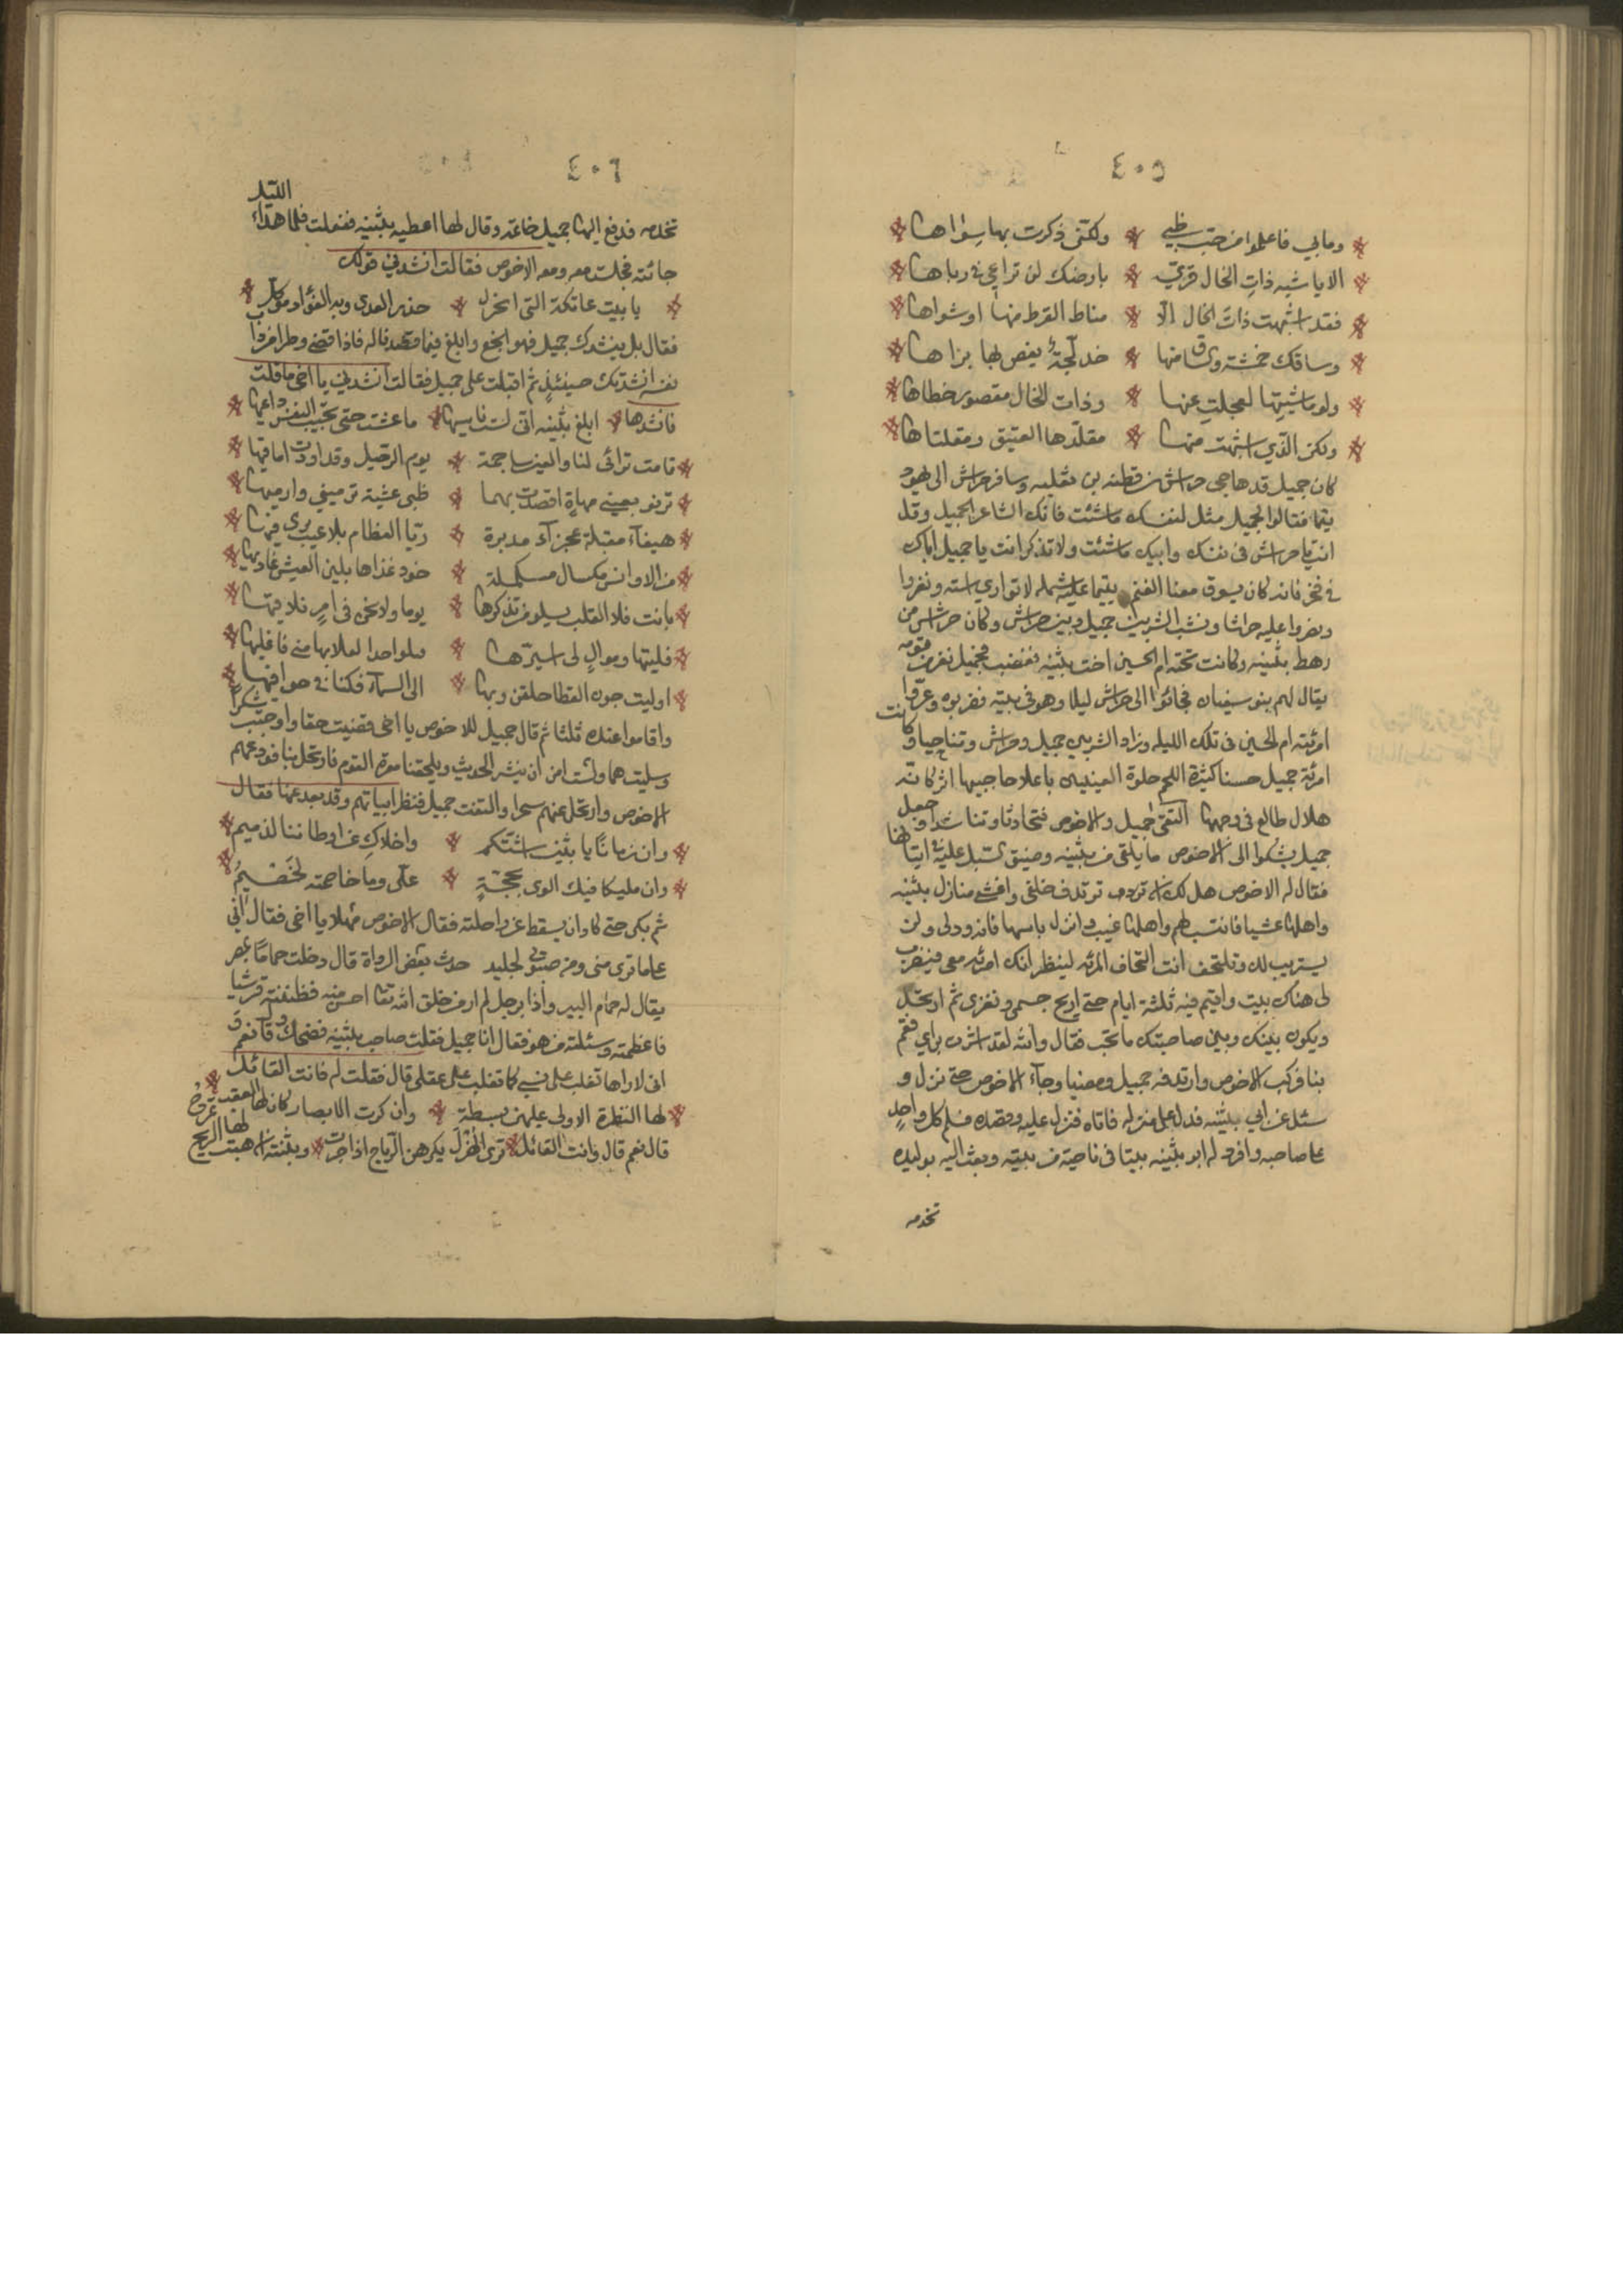 ٤٠٥
وما بي فاعلموا من حب ظبي ولكني ذكرت بها سواها
الا يا شبه ذات الخال قري بارضك لن تراعي في رباها
فقد اشبهت ذات الخال الا مناط القرط منها او شواها
وساقك حمشة وساق منها خدلجة يغص بها براها
ولو ماشيتها لعجلت عنها وذات الخال مقصور خطاها
ولكن الذي اشبهت منها مقلدها العتيق ومقلتاها
كان جميل قد هاجى حراش بن قطنه بن ثعلبه وسافر حراش الى يهود
فقالوا لجميل مثل لنفسك ما شئت فانك الشاعر الجميل وقل
انت يا حراش في نفسك وابيك ما شئت ولا تذكر انت يا جميل اباك
في فخر فانه كان يسوق معنا الغنم عليه شمله لا تواري استه ونفروا
ونفروا عليه حراشا ونشب الشر بين جميل وبين حراش وكان حراش من
رهط بثينه وكانت تحته ام الحسين اخت بثينه فغضب لجميل نفر من قومه
يقال لهم بنو سفيان فجائوا الى حراش ليلا وهو في بيته فضربوه وعروا
امرئته ام الحسين في تلك الليله وزاد الشر بين جميل وحراش وتهاجيا وكانت
امرئة جميل حسنا كثيرة اللحم حلوة العينين باعلا حاجبيها اثر كانه
هلال طالع في وجهها التقى جميل والاخوص فتحادثا وتناشدا وجعل
جميل يشكوا الى الاخوص ما يلقى من بثينه وضيق السبل عليه في اتيانها
فقال له الاخوص هل لك ان تردف خلفي وافشي منازل بثينه
واهلها عشيا فانتسب لهم واهلها غيب وانزل بابيها فانه ود لي ولن
يستريب لك وتلتحف انت التحاف المرئه لينظر انك امرئه معي فيضرب
لي هناك بيت واقيم فيه ثلثة ايام حتى اريح جسمي ونفري ثم ارتحل
ويكون بينك وبين صاحبتك ما تحب فقال والله لقد اشرت براي فقم
بنا فركب الاخوص وارتدفه جميل ومضيا وجآء الاخوص حتى نزل و
سئل عن ابي بثينه فدل على منزله فاتاه فنزل عليه وقصده فسلم كل واحد
على صاحبه وافرد له ابو بثينه بيتا في ناحية من بيته وبعث اليه بوليده
تخدمه
٤٠٦
تخدمه فدفع اليها جميل خاتمه وقال لها اعطيه بثينه ففعلت فلما هدا الليل
جائته فجلست معه ومعه الاخوص فقالت انشدني قولك
يا بيت عاتكة التي اتغزل حذر العدى وبه الفؤاد موكل
فقال بل ينشدك جميل فهو انجع وابلغ فيما قصدنا له فاذا قضى وطرا من
نفسه انشدتك حينئذ ثم اقبلت على جميل فقالت انشدني يا اخي ما قلت
فانشدها ابلغ بثينه اني لست ناسيها ما عشت حتى تجيب النفس داعيها
قامت ترائى لنا والعين ساجمة يوم الرحيل وقد اودت اماقيها
ترنو بعيني مهاة اقصدت بهما ظبي عشية ترميني وارميها
هيفآء مقبلة عجزآء مدبرة ريا العظام بلا عيب يرى فيها
من الاوانس مكسال خود غذاها بلين العيش غاذيها
بانت فلا القلب يسلو من تذكرها يوما ولا نحن في امر نلاقيها
اوليت جون القطا حلقن وبها الى السمآء فكنا في خوافيها
واقاموا عنده ثلثا ثم قال جميل للاخوص يا اخي قضيت حقا واوجبت شكرا
وسليت هما ولست امن ان ينشر الحديث ويلحقنا معرة القوم فارتحل بنا فودعهم
الاخوص وارتحل عنهم سحرا والتفت جميل فنظر ابياتهم وقد بعد عنها فقال
وان زمانا يا بثين اشتكم واخلاك عن اوطاننا لذميم
وان مليكا فيك الوى بحجة علي وما خاصمته لخصيم
ثم بكى حتى كاد ان يسقط عن راحلته فقال الاخوص مهلا يا اخي فقال اني
على ما ترى مني لجليد حدث بعض الرواة قال دخلت حماما بمصر
يقال له حمام البير واذا برجل لم ار من خلق الله تعا احسن منه فظننته قرشيا
فاعظمته وسئلته من هو فقال انا جميل فقلت صاحب بثينه فضحك وقال نعم
اني لاراها تغلب على كما تغلب على عقلي قال فقلت له فانت القائل
لها النظرة الاولى عليهن بسطة وان كرت الابصار كان لها العقب
قال نعم قال وانت القائل ترى الزل يكرهن الرياح اذا جرت وبثنة ان هبت لها الريح تفرح